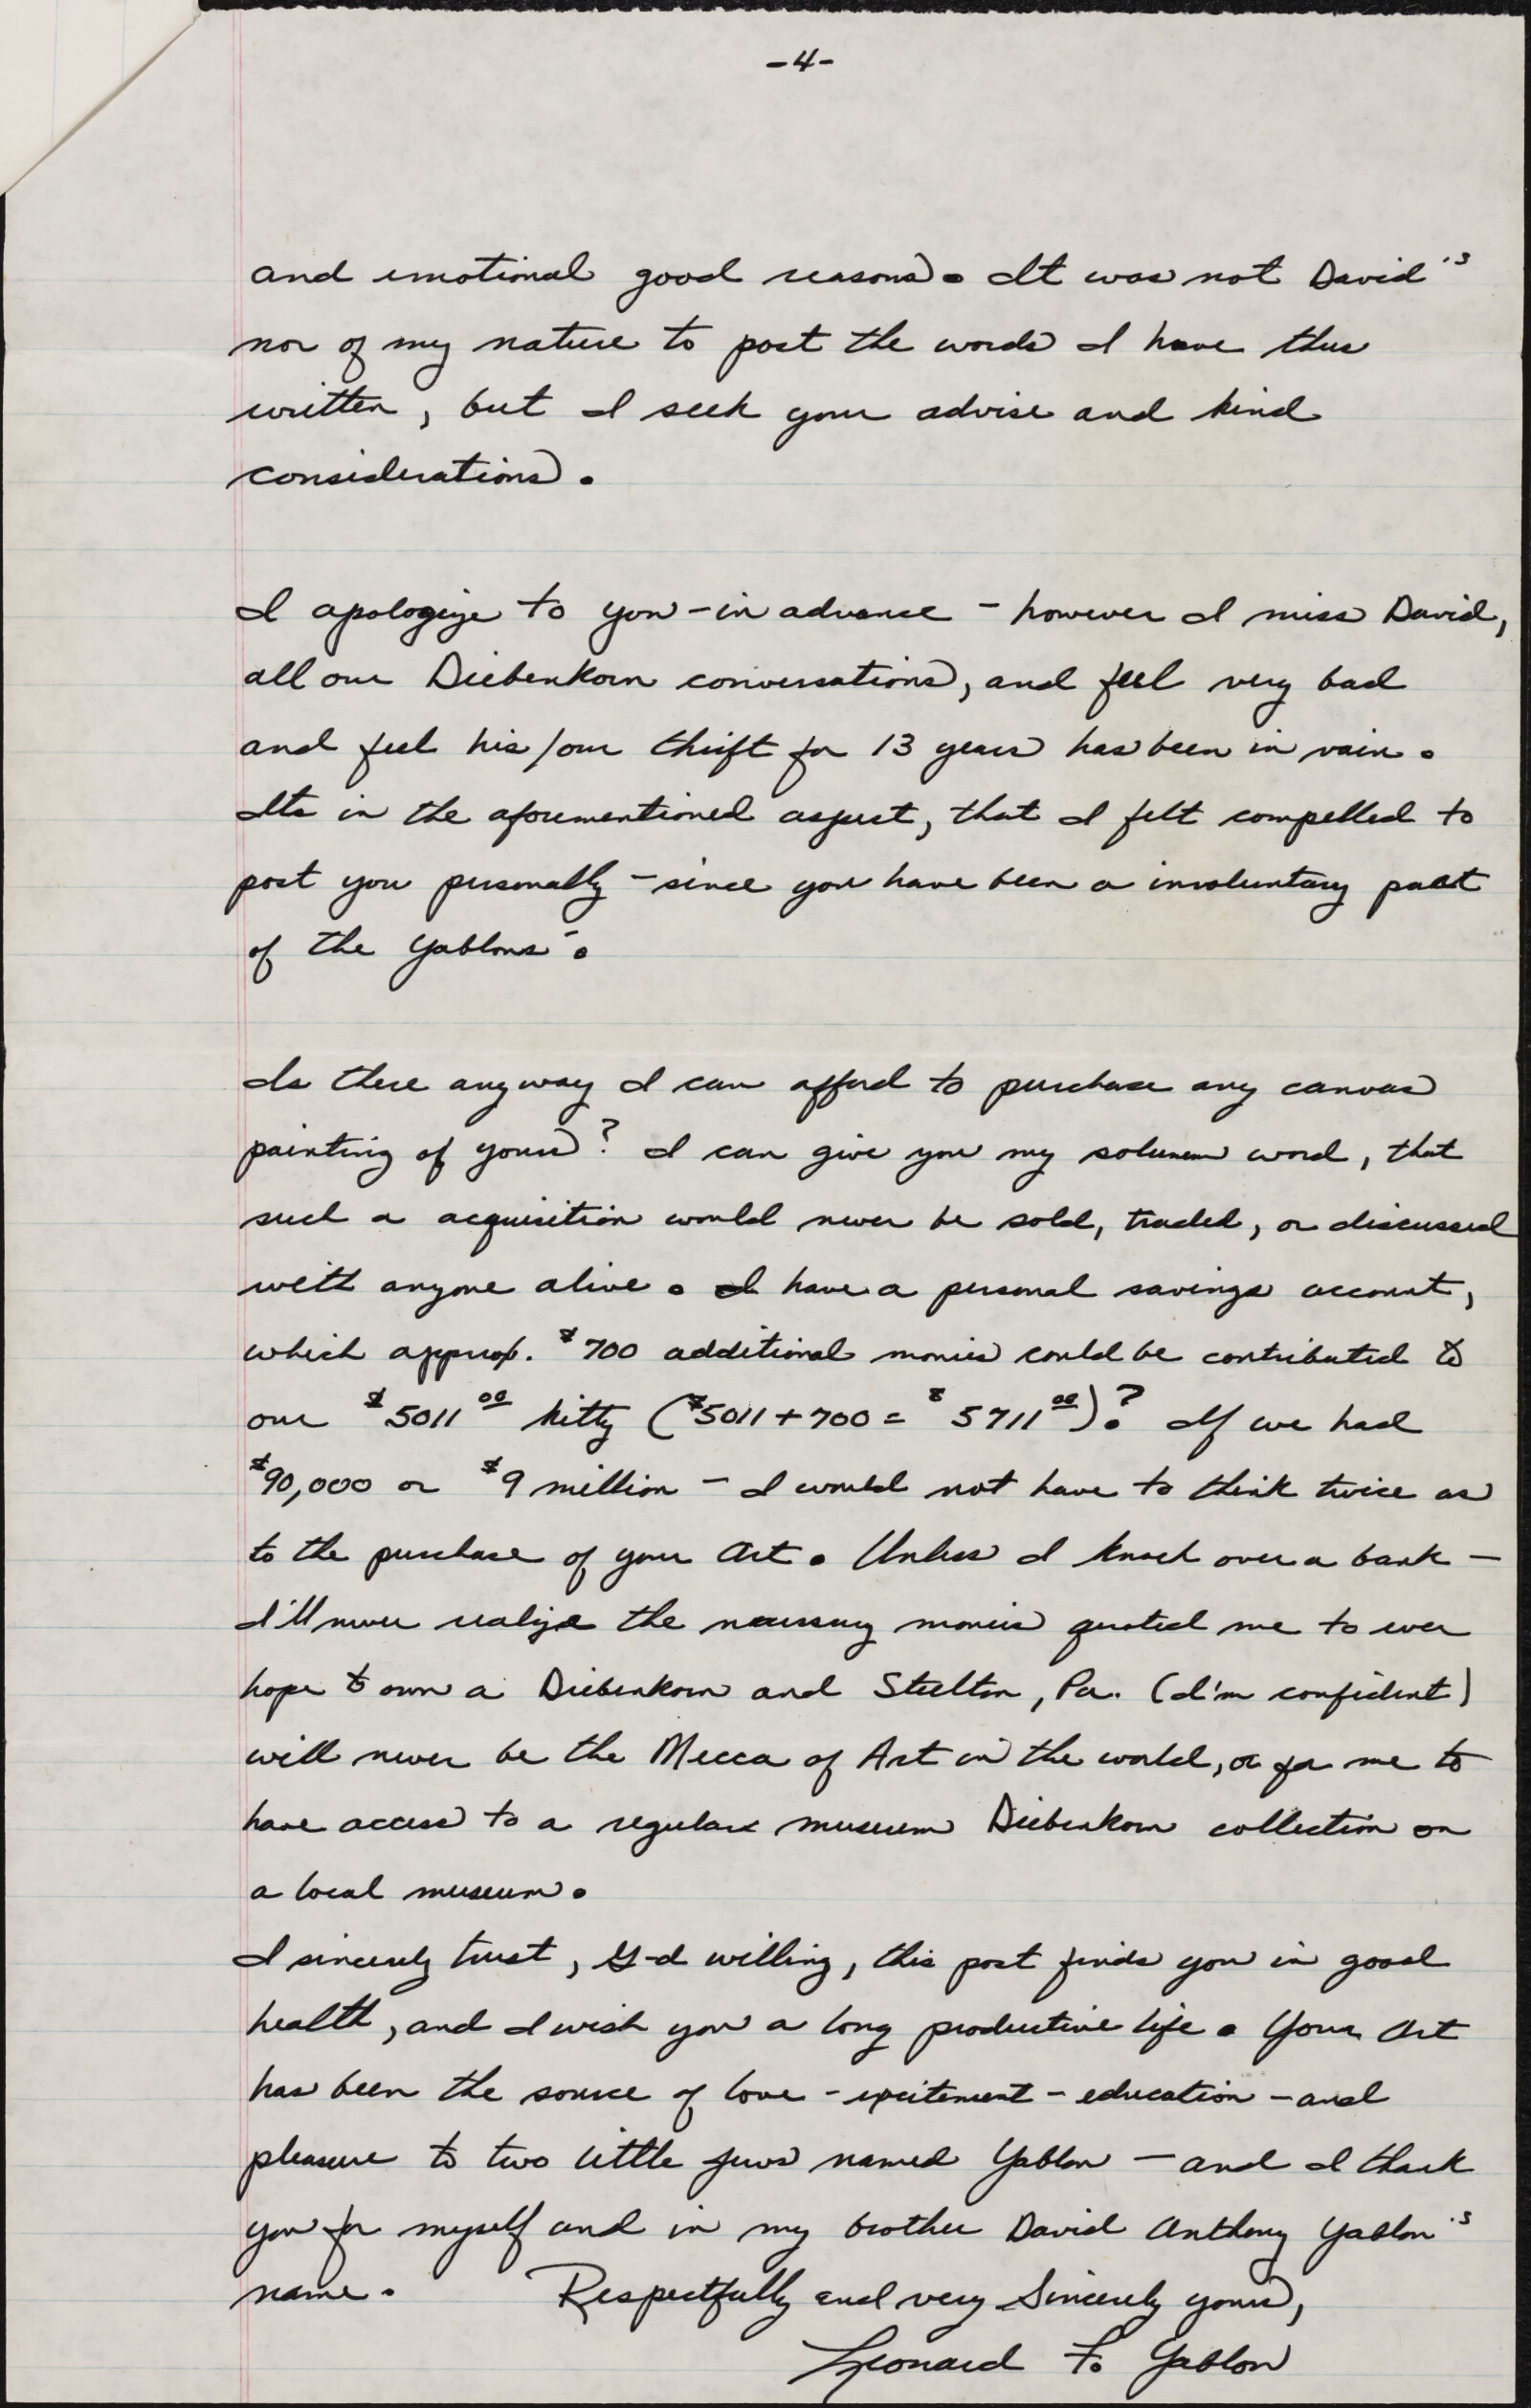 -4-
and emotional good reasons. It was not David's
nor of my nature to post the words I have thus
written, but I seek your advise and kind
considerations.
I apologize to you - in advance - however I miss David,
all our Diebenkorn conversations, and feel very bad
and feel his/our thrift for 13 years has been in vain.
Its in the aforementioned aspect, that I felt compelled to
post you personally - since you have been a involuntary part
of the Yablons'.
Is there anyway I can afford to purchase any canvas
painting of yours? I can give you my solumem word, that
such a acquisition would never be sold, traded, or discussed
with anyone alive. I have a personal savings account,
which approx. $700 additional monies could be contributed to
our $5011 00 kitty ($5011 + 700 = $5711 00)? If we had
$90,000 or $9 million - I would not have to think twice as
to the purchase of your Art. Unless I knock over a bank -
I'll never realize the necessary monies quoted me to ever
hope to own a Diebenkorn and Steelton, Pa. (I'm confident)
will never be the Mecca of Art in the world, or for me to
have access to a regular museum Diebenkorn collection on
a local museum.
I sincerely trust, G-d willing, this post finds you in good
health, and I wish you a long productive life. Your Art
has been the source of love - excitement - education - and
pleasure to two little Jews named Yablon - and I thank
you for myself and in my brother David Anthony Yablon's
name. Respectfully and very Sincerely yours,
Leonard F. Yablon